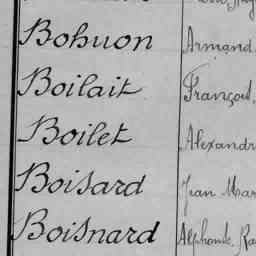 Bohuon Armand
Boilait François
Boilet Alexandr
Boisard Jean Mar
Boisnard Alphonse Ra